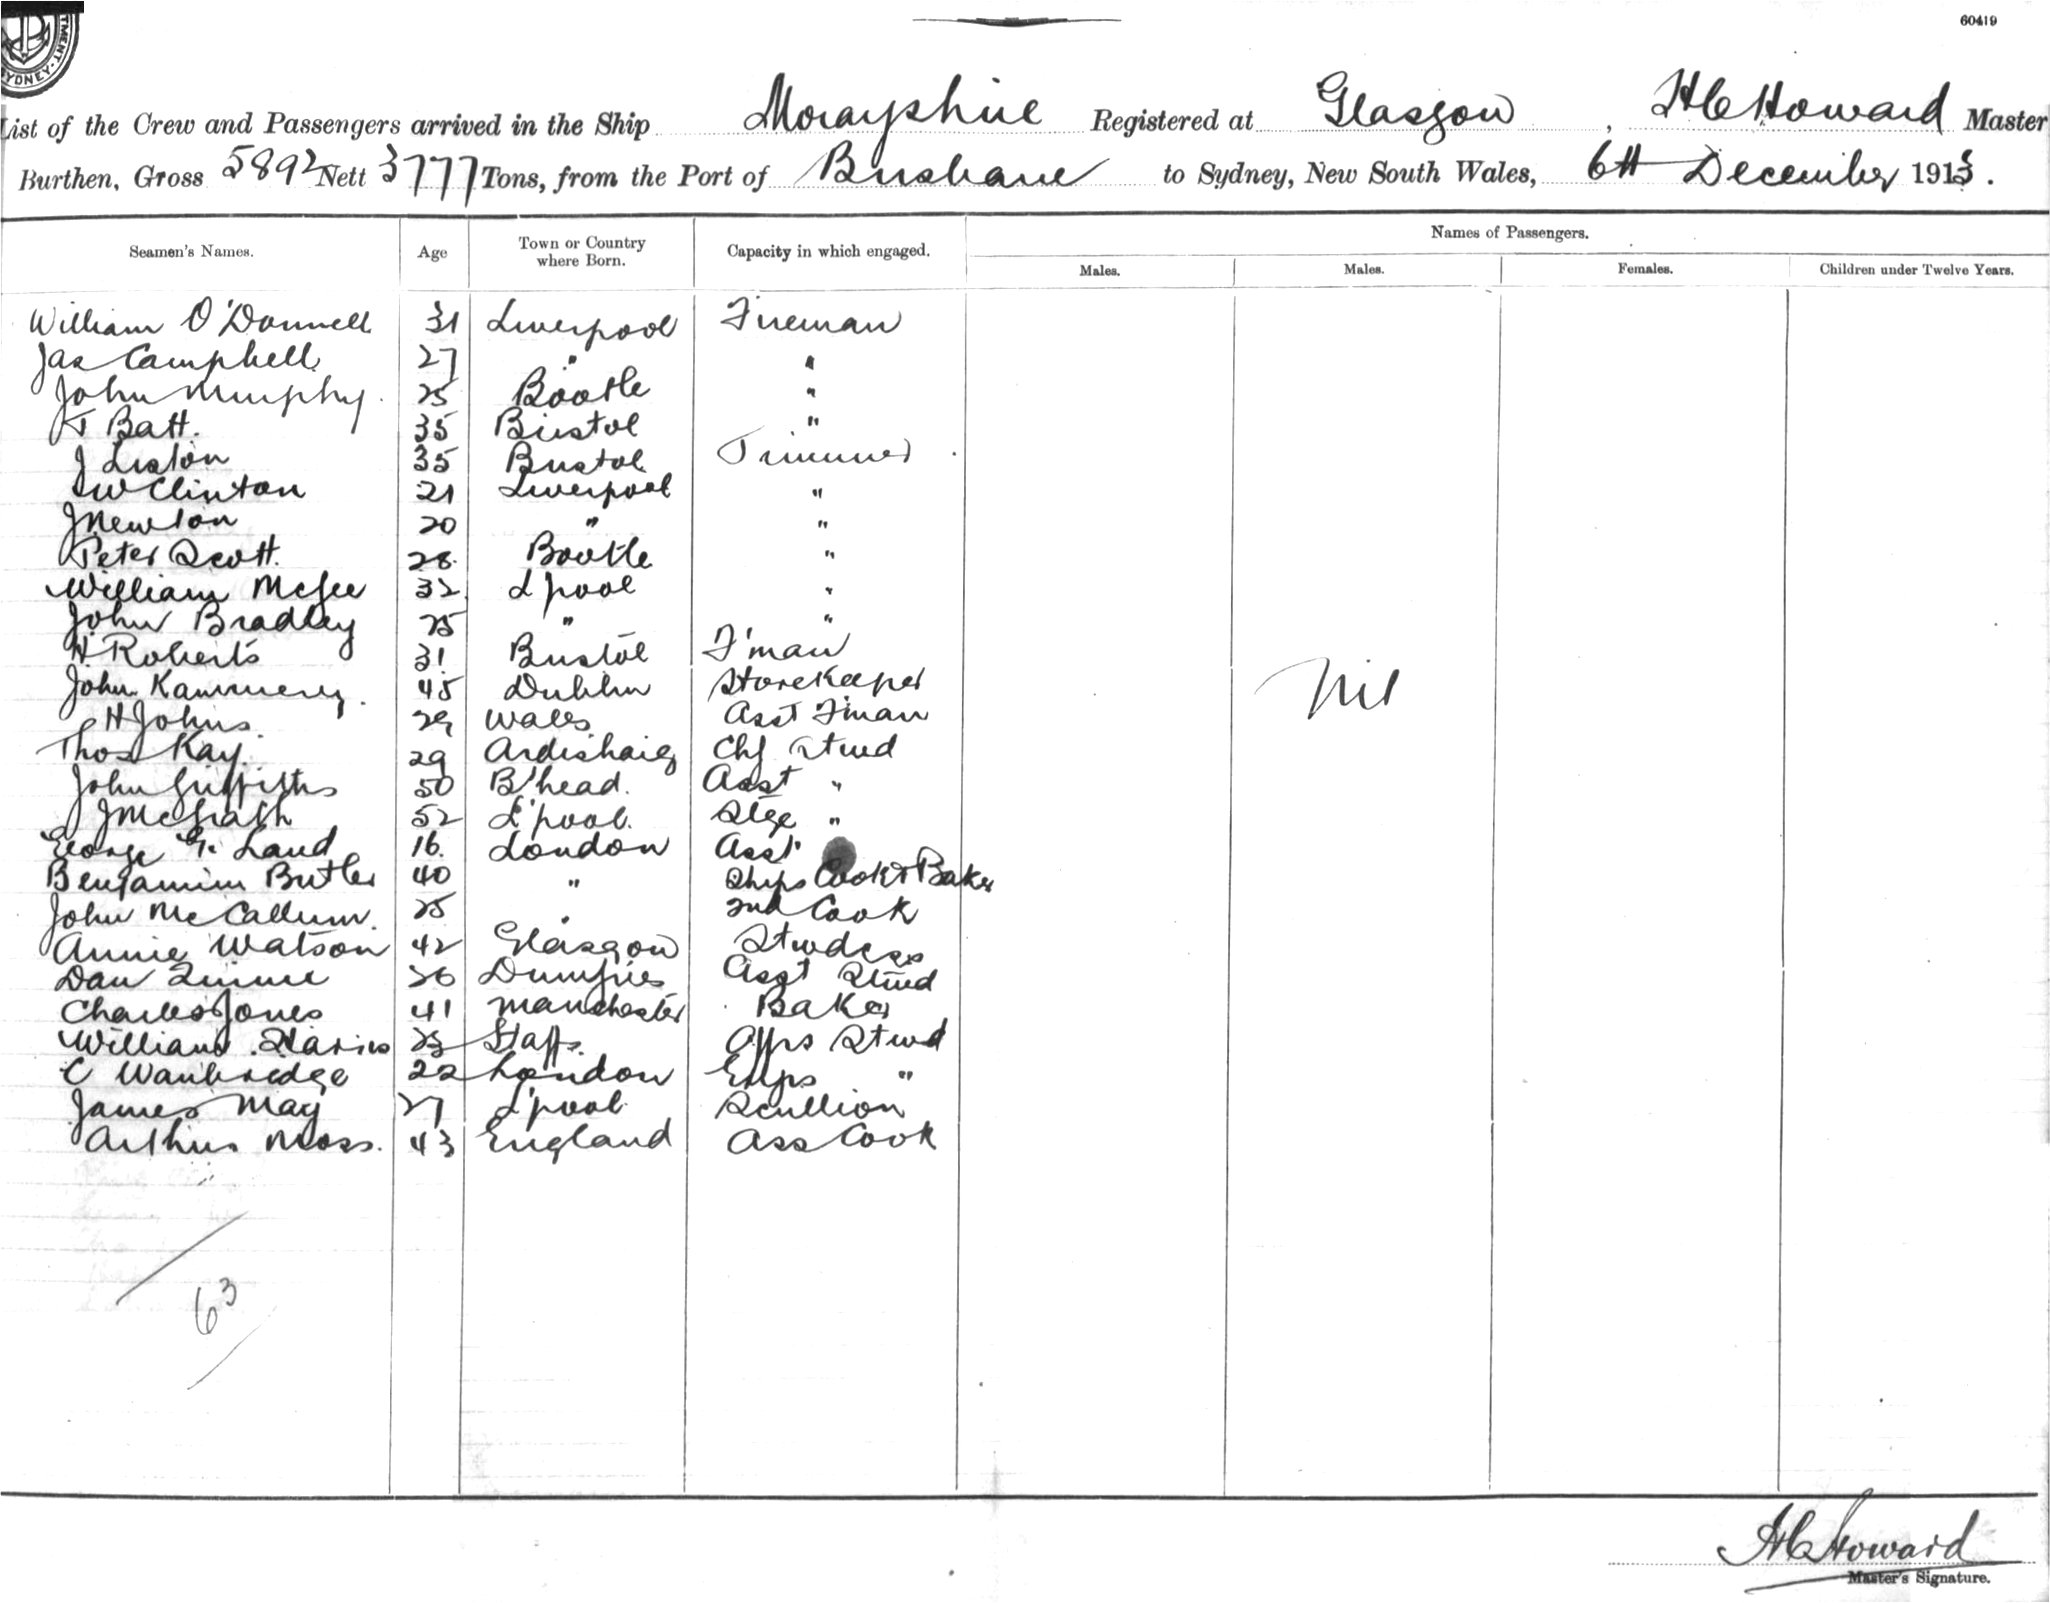 60419
List of the Crew and Passengers arrived in the Ship Morayshire Registered at Glasgow, H C Howard Master
Burthen, Gross 5892 Nett 3777 Tons, from the Port of Brisbane to Sydney, New South Wales, 6th December 1913.
Names of Passengers.
Seamen's Names. Age Town or Country where Born. Capacity in which engaged. Males. Males. Females. Children under Twelve Years.
William O'Donnell 31 Liverpool Fireman
Jas Campbell 27 " "
John Murphy 25 Bootle "
T Batt. 35 Bristol "
J Liston 35 Bristol Trimmer
W Clinton 21 Liverpool "
J Newton 20 " "
Peter Scott. 28 Bootle "
William McGee 32 L'pool "
John Bradley 25 " "
H Roberts 31 Bristol F'man
John 45 Dublin Storekeeper
Nil
H Johns. 29 Wales Asst F'man
Thos Kay. 29 Ardishaig Chf Stwd
John Griffiths 50 B'head. Asst "
J McGrath 52 L'pool. Stge "
George G. Land 16. London Asst
Benjamin Butler 40 " Ships Cook & Baker
John McCallum. 25 " 2nd Cook
Annie Watson 42 Glasgow Stwdess
Dan 26 Dumfries Asst Stwd
Charles Jones 41 Manchester Baker
William 23 Staffs. Offrs Stwd
C 22 London Engs "
James May 27 L'pool Scullion
Arthur Moss. 43 England Ass Cook
63
H C Howard
Master's Signature.